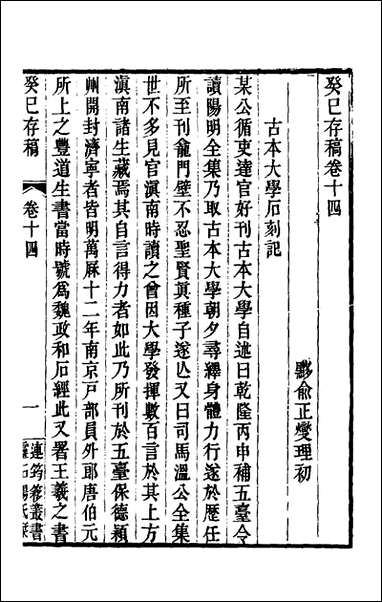 癸巳存稿卷十四
黟俞正燮理初
古本大學石刻記
某公循吏達官好刊古本大學自述曰乾隆丙申補五臺令
讀陽明全集乃取古本大學朝夕尋繹身體力行遂於歷任
所至刊龕門壁不忍聖賢眞種子遂亾又曰司馬溫公全集
世不多見官滇南時讀之會因大學發揮數百言於其上方
滇南諸生藏焉其自言得力者如此乃所刊於五臺保德潁
州開封濟寧者皆明萬厤十二年南京戸部員外郎唐伯元
所上之豐道生書當時號爲魏政和石經此又署王羲之書
癸巳存稿
卷十四
一
連筠簃叢書
靈石楊氏栞